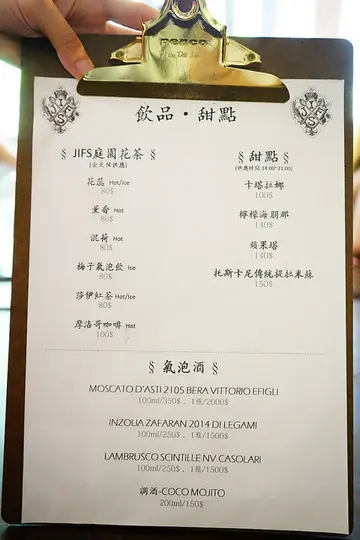 penco
飲品・甜點
§ JIFS庭園花茶 §
(全天候供應)
花蕊 Hot/Ice
80$
薰香 Hot
80$
混荷 Hot
80$
梅子氣泡飲 Ice
80$
莎伊紅茶 Hot/Ice
80$
摩洛哥咖啡 Hot
100$
§ 甜點 §
(供應時間:14:00~21:00)
卡塔拉娜
100$
檸檬海朋那
140$
蘋果塔
140$
托斯卡尼傳統提拉米蘇
150$
§ 氣泡酒 §
MOSCATO D'ASTI 2105 BERA VITTORIO EFIGLI
100ml/350$ , 1瓶/2000$
INZOLIA ZAFARAN 2014 DI LEGAMI
100ml/250$ , 1瓶/1500$
LAMBRUSCO SCINTILLE NV CASOLARI
100ml/250$ , 1瓶/1500$
調酒-COCO MOJITO
200ml/150$